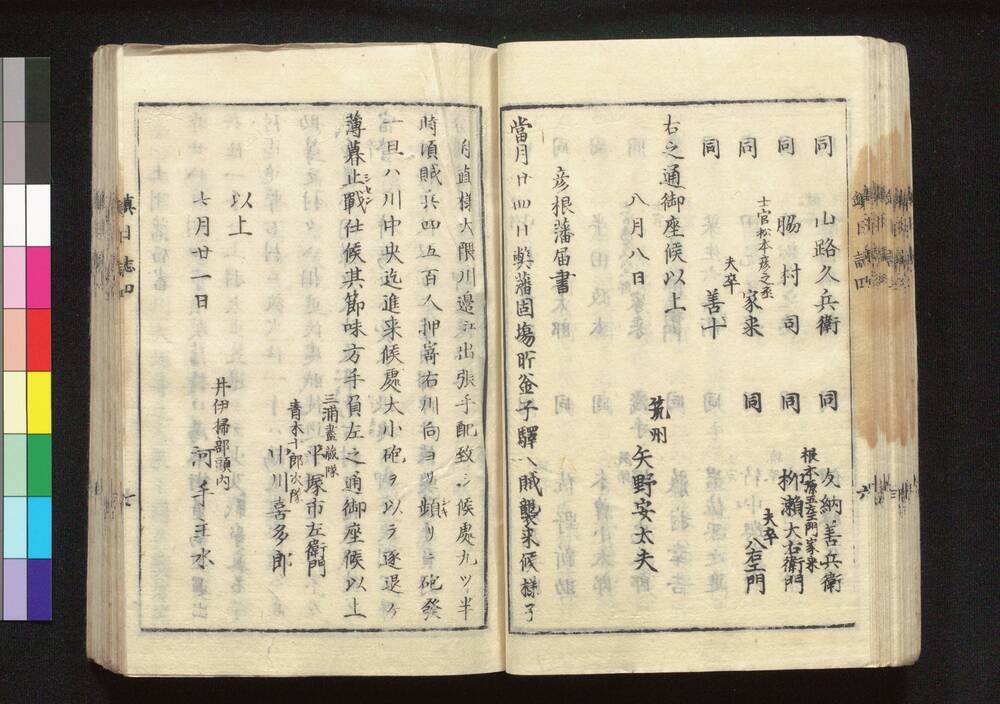 同 山路久兵衛 同 友納善兵衛
根本源五左エ門家来
同 脇村司 同 柳瀬大右衛門
士官松本彦之丞 夫卒
同 家来 同 八右エ門
夫卒
同 善十
右之通御座候以上
八月八日 筑州 矢野安太夫
彦根藩届書
當月廿四日弊藩固場貯釜子驛ヘ賊襲来候様子
大隈川邊江出張手配致シ候處九ツ半
時頃賊兵四五百人押寄右川向ヨリ頻リニ砲發
一旦ハ川中央迄進来候處大小砲ヲ以テ逐退ケ
薄暮止戰仕候其節味方手負左之通御座候以上
三浦 藏隊
平塚市左衛門
青木十郎次隊
中川喜多郎
以上
七月廿一日
井伊掃部頭内
河手主水
鎮日誌四
六
七